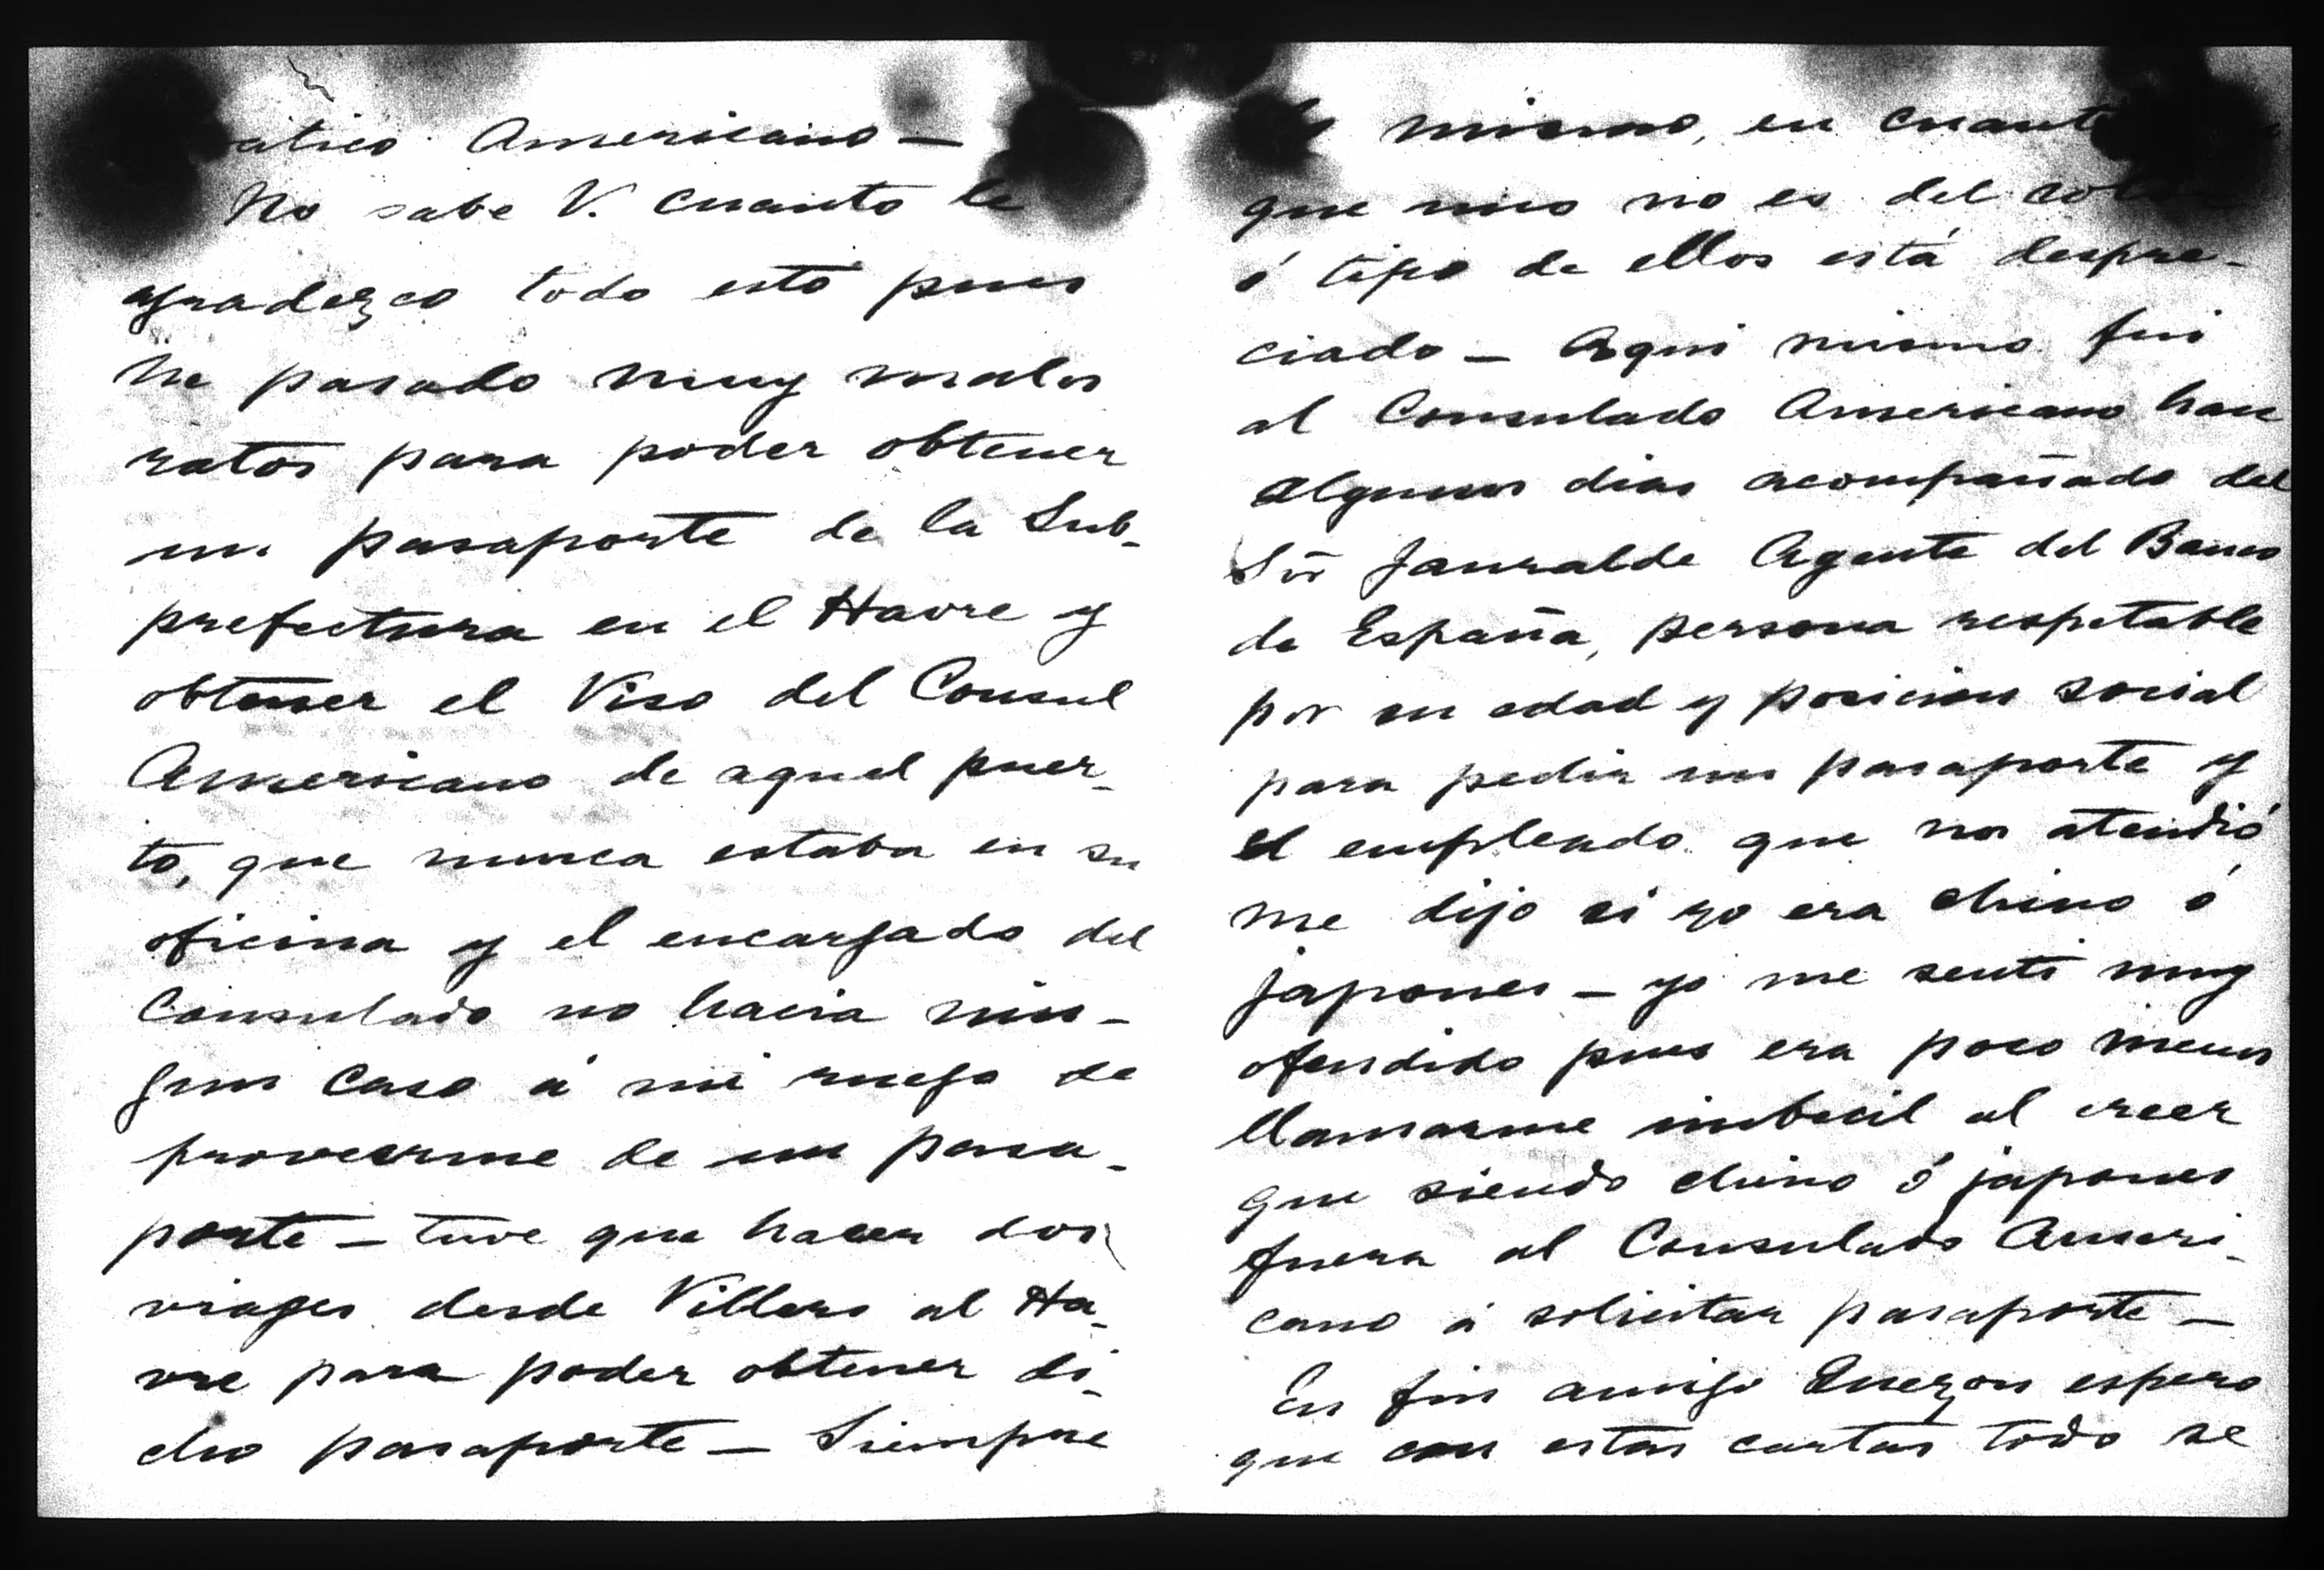 ático Americano —
No sabe V. cuanto le
agradezco todo esto pues
he pasado muy malos
ratos para poder obtener
un pasaporte de la Sub-
prefectura en el Havre y
obtener el Viso del Consul
Americano de aquel puer-
to, que nunca estaba en su
oficina y el encargado del
Consulado no hacia nin-
gun caso á mi ruego de
proveerme de un pasa-
porte — tuve que hacer dos
viages desde Villers al Ha-
vre para poder obtener di-
cho pasaporte — Siempre
lo mismo, en cuanto
que uno no es del color
ó tipo de ellos está despre-
ciado — Aqui mismo fui
al Consulado Americano hace
algunos dias acompañado del
Sõr Jauralde Agente del Banco
de España, persona respetable
por su edad y posicion social
para pedir un pasaporte y
el empleado que nos atendió
me dijo si yo era chino ó
japones — yo me senti muy
ofendido pues era poco menos
llamarme imbecil al creer
que siendo chino ó japones
fuera al Consulado Ameri-
cano á solicitar pasaporte —
En fin amigo Quezon espero
que con estas cartas todo se